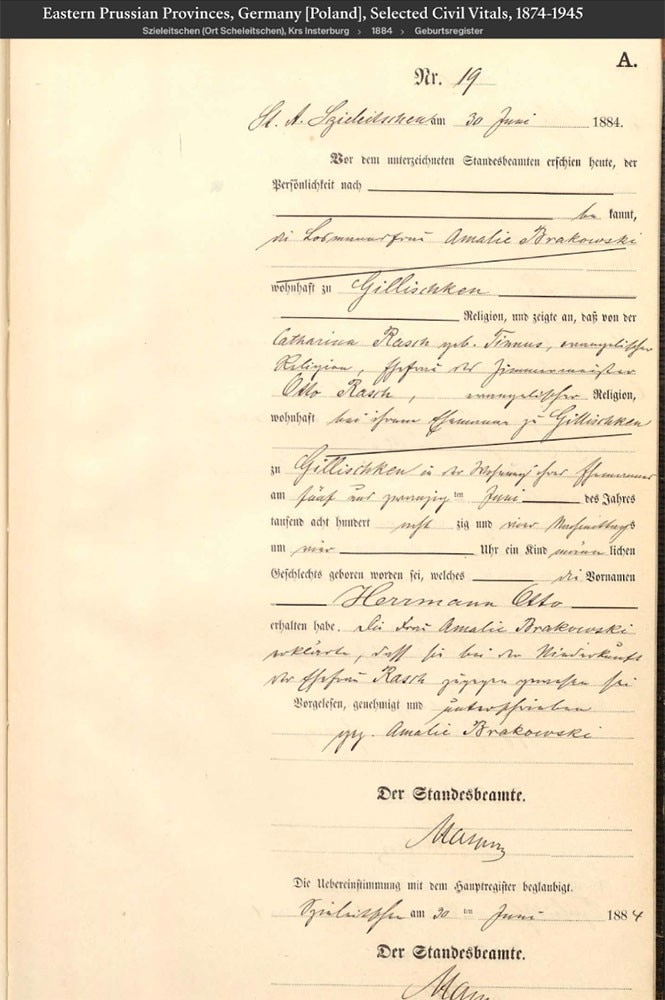 Eastern Prussian Provinces, Germany [Poland], Selected Civil Vitals, 1874-1945
Szieleitschen (Ort Scheleitschen), Krs Insterburg > 1884 > Geburtsregister
A.
Nr. 19
St. A. Szieleitschen am 30 Juni 1884.
Vor dem unterzeichneten Standesbeamten erschien heute, der
Persönlichkeit nach
be kannt,
die Losmannsfrau Amalie Brakowski
wohnhaft zu Gillischken
Religion, und zeigte an, daß von der
Catharina Rasch geb. Tinnus, evangelischer
Religion, Ehefrau des Zimmermeister
Otto Rasch, evangelischer Religion,
wohnhaft bei ihrem Ehemanne zu Gillischken
zu Gillischken in der Wohnung ihres Ehemannes
am fünf und zwanzig ten Juni des Jahres
tausend acht hundert acht zig und vier Nachmittags
um vier Uhr ein Kind männ lichen
Geschlechts geboren worden sei, welches die Vornamen
Herrmann Otto
erhalten habe. Die Frau Amalie Brakowski
erklärte, daß sie bei der Niederkunft
der Ehefrau Rasch zugegen gewesen sei
Vorgelesen, genehmigt und unterschrieben
gez. Amalie Brakowski
Der Standesbeamte.
Die Uebereinstimmung mit dem Hauptregister beglaubigt.
Szieleitschen am 30 ten Juni 1884
Der Standesbeamte.